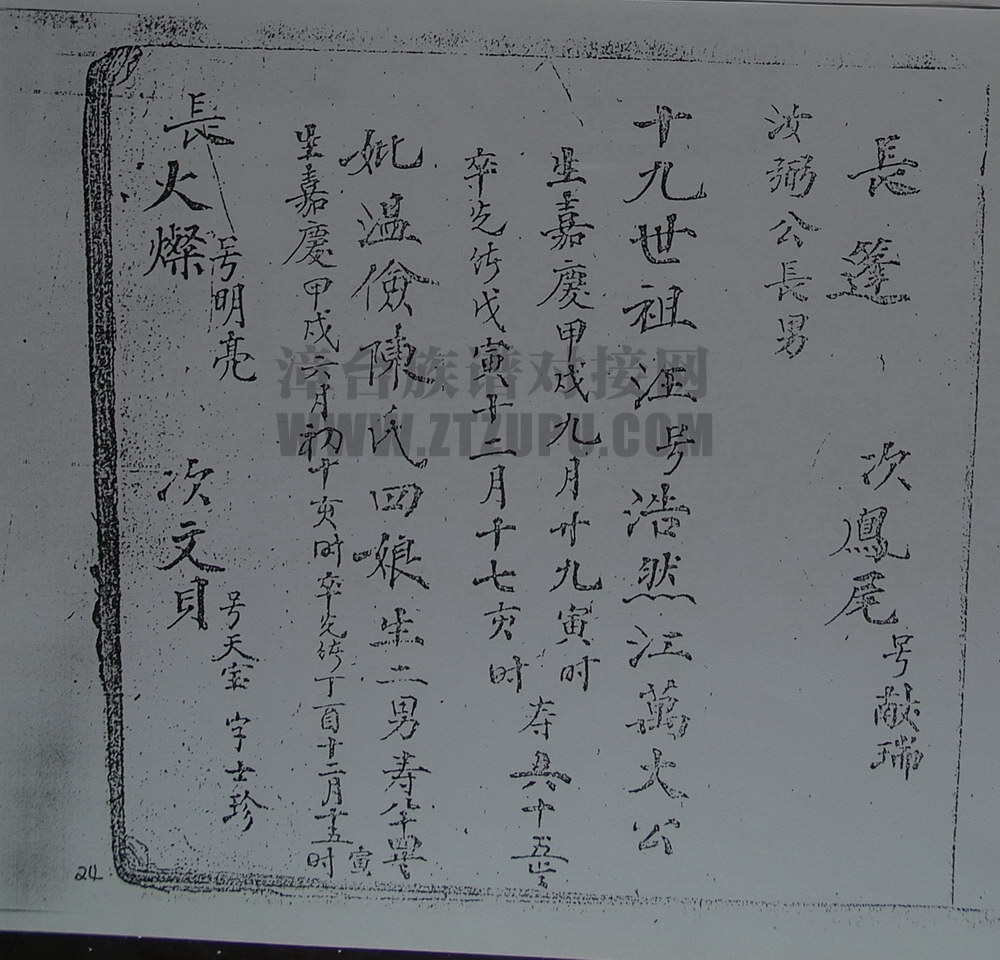 長篷 次鳳尾 号敲瑞
汝弼公長男
十九世祖汪号浩然江萬大公
生嘉慶甲戌九月廿九寅时
卒光绪戊寅十二月十七亥时
寿六十五岁
妣温儉陳氏四娘生二男寿八十四岁
生嘉慶甲戌六月初十亥时卒光绪丁酉十二月十五寅时
長火燦 号明亮 次文貝 号天宝 字士珍
漳台族谱对接网
WWW.ZTZUPU.COM
24